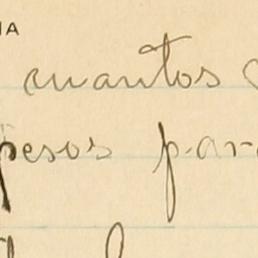 IA
cuantos
pesos para